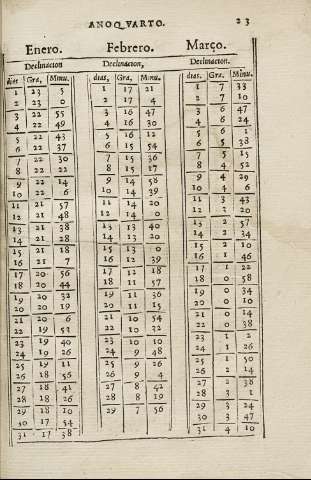 ANOQVARTO. 23
Enero. Febrero. Março.
Declinacion Declinacion, Declinacion,
dias Gra, Minu. dias, Gra, Minu. dias. Gra, Minu.
1 23 5 1 17 21 1 7 33
2 23 0 2 17 4 2 7 10
3 22 55 3 16 47 3 6 47
4 22 49 4 16 30 4 6 24
5 22 43 5 16 12 5 6 1
6 22 37 6 15 54 6 5 38
7 22 30 7 15 36 7 5 15
8 22 22 8 15 17 8 4 52
9 22 14 9 14 58 9 4 29
10 22 6 10 14 39 10 4 6
11 21 57 11 14 20 11 3 43
12 21 48 12 14 0 12 3 20
13 21 38 13 13 40 13 2 57
14 21 28 14 13 20 14 2 34
15 21 18 15 13 0 15 2 10
16 21 7 16 12 39 16 1 46
17 20 56 17 12 18 17 1 22
18 20 44 18 11 57 18 0 58
19 20 32 19 11 36 19 0 34
20 20 19 20 11 15 20 0 10
21 20 6 21 10 54 21 0 14
22 19 53 22 10 32 22 0 38
23 19 40 23 10 10 23 1 2
24 19 26 24 9 48 24 1 26
25 19 11 25 9 26 25 1 50
26 18 56 26 9 4 26 2 14
27 18 41 27 8 42 27 2 38
28 18 26 28 8 19 28 3 1
29 18 10 29 7 56 29 3 24
30 17 54 30 3 47
31 17 38 31 4 10